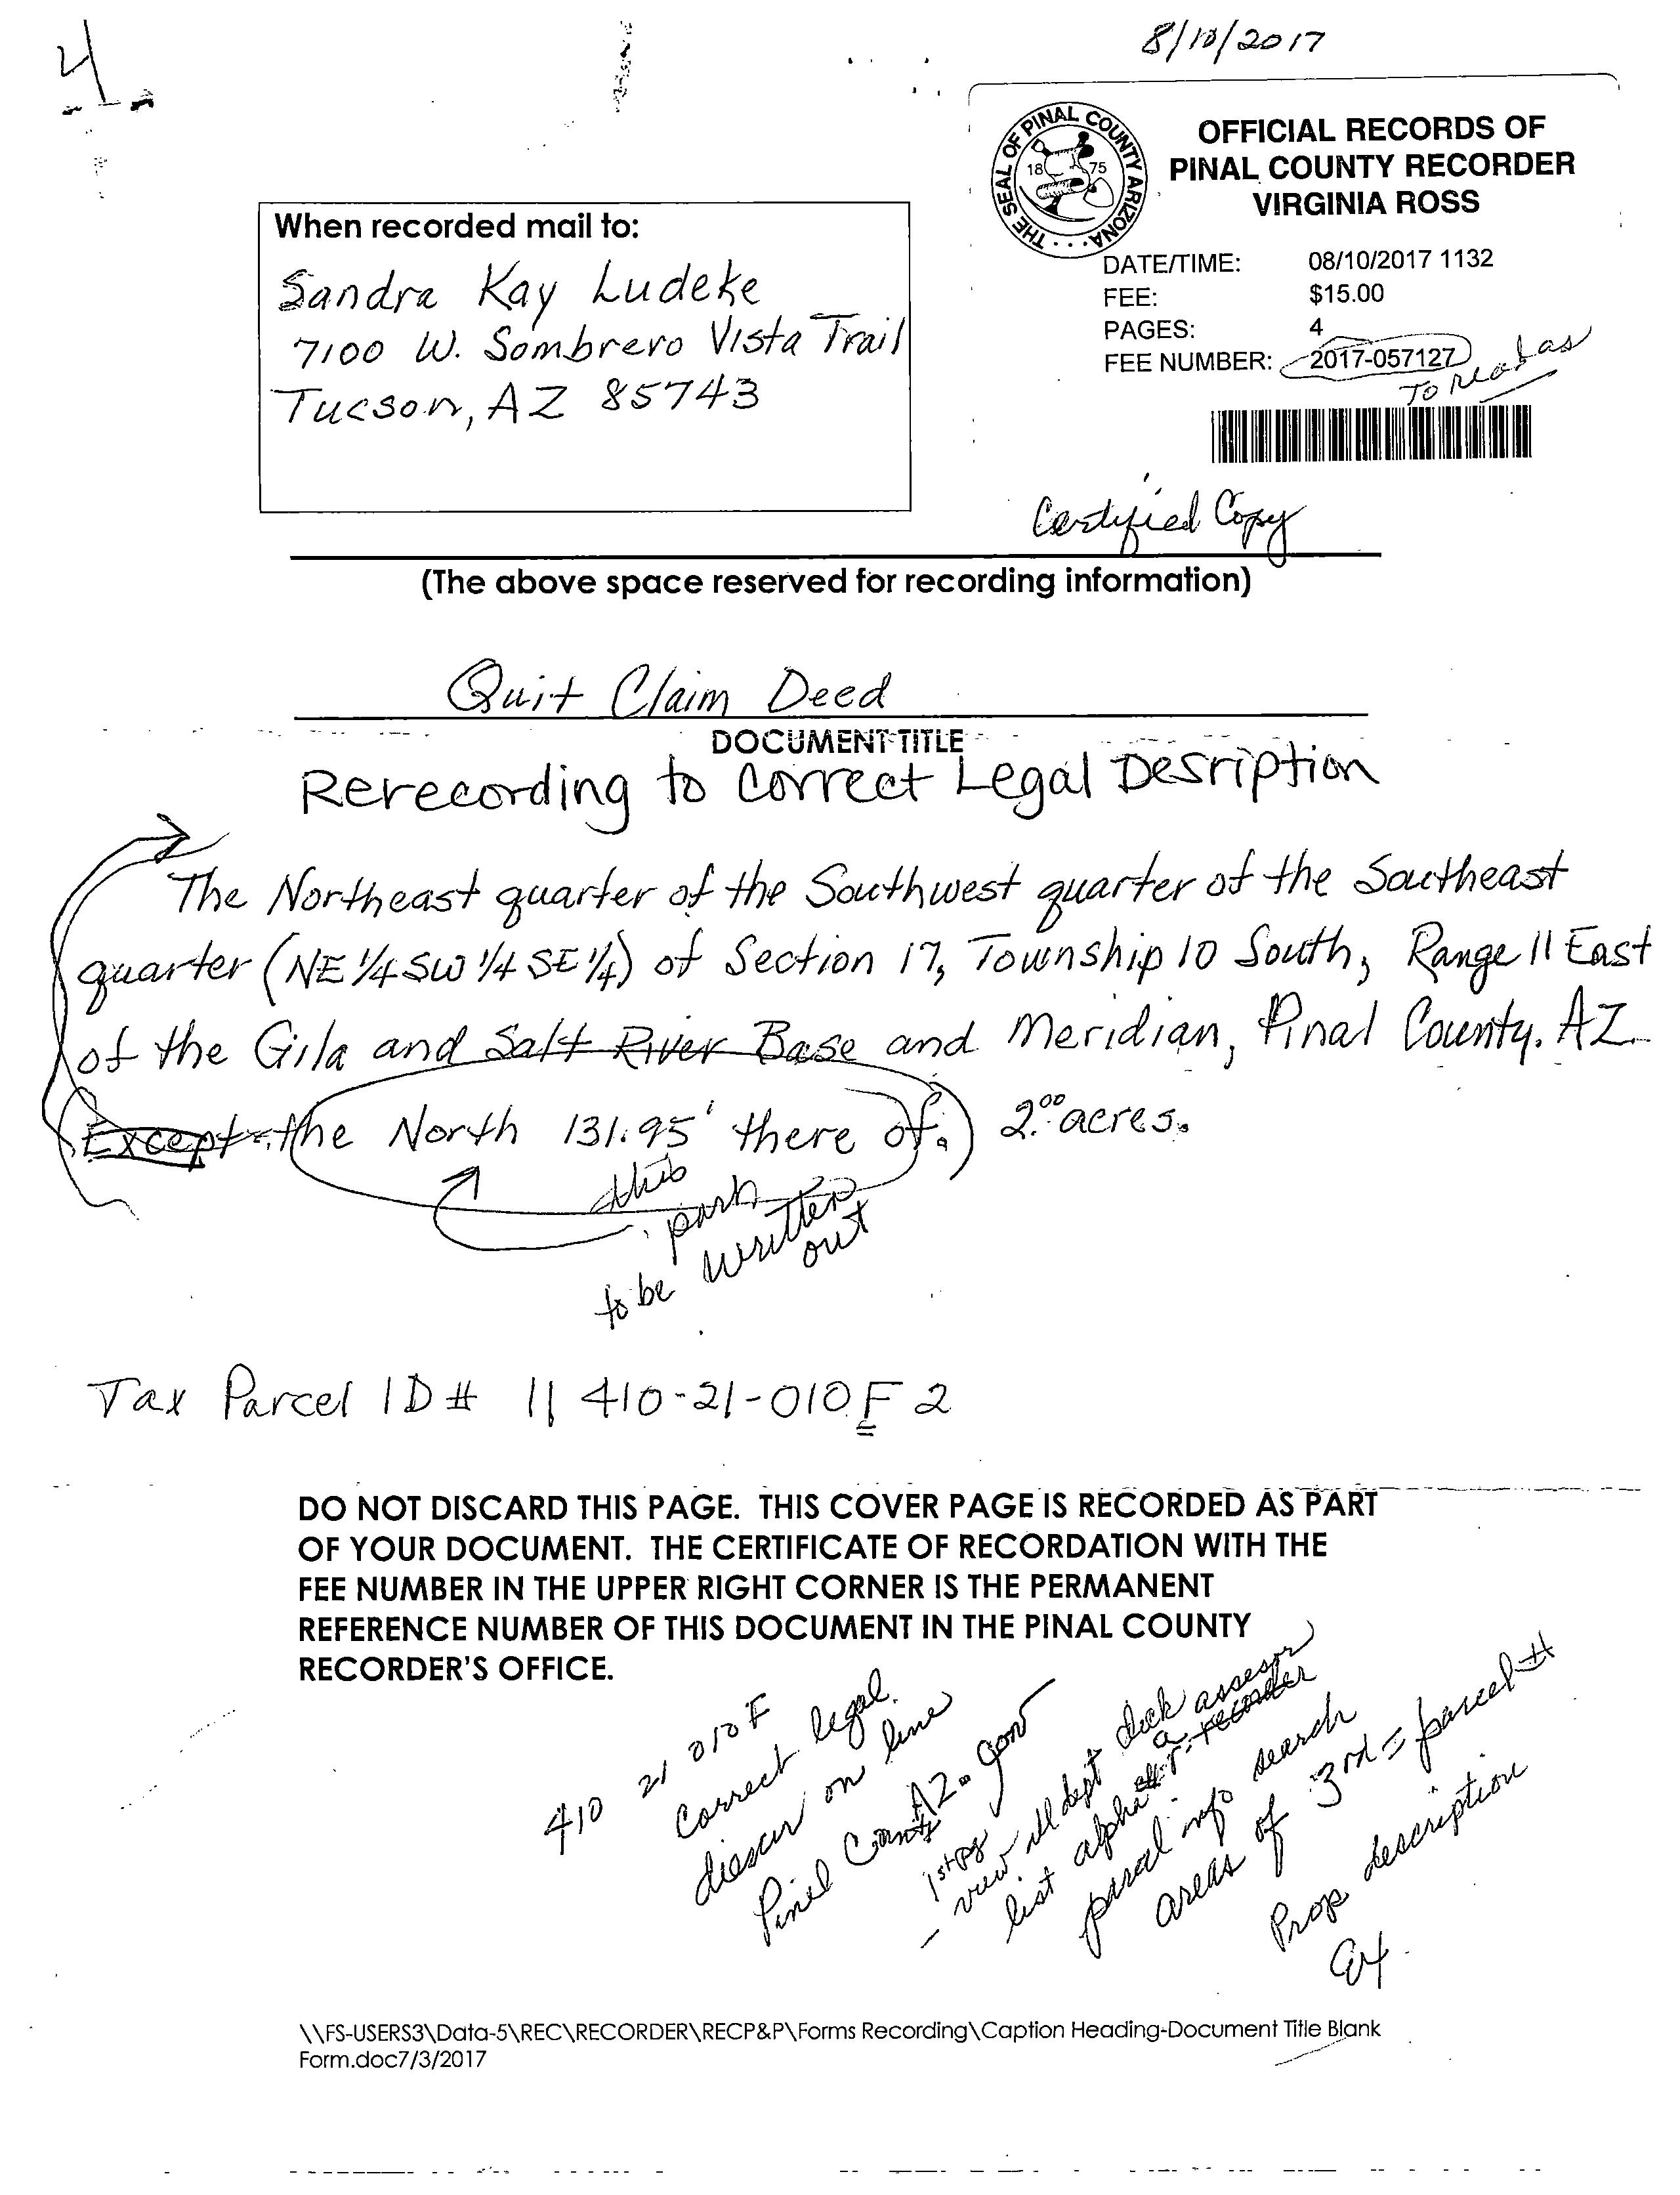 4
8/10/2017
THE SEAL OF PINAL COUNTY ARIZONA
18 75
OFFICIAL RECORDS OF
PINAL COUNTY RECORDER
VIRGINIA ROSS
DATE/TIME: 08/10/2017 1132
FEE: $15.00
PAGES: 4
FEE NUMBER: 2017-057127
To read as
When recorded mail to:
Sandra Kay Ludeke
7100 W. Sombrero Vista Trail
Tucson, AZ 85743
Certified Copy
(The above space reserved for recording information)
Quit Claim Deed
DOCUMENT TITLE
Rerecording to Correct Legal Desription
The Northeast quarter of the Southwest quarter of the Southeast
quarter (NE 1/4 SW 1/4 SE 1/4) of Section 17, Township 10 South, Range 11 East
of the Gila and Salt River Base and Meridian, Pinal County. AZ.
(Except the North 131.95' there of.) 2.00 acres.
this
part
to be written
out
Tax Parcel ID # 11 410-21-010F 2
DO NOT DISCARD THIS PAGE. THIS COVER PAGE IS RECORDED AS PART
OF YOUR DOCUMENT. THE CERTIFICATE OF RECORDATION WITH THE
FEE NUMBER IN THE UPPER RIGHT CORNER IS THE PERMANENT
REFERENCE NUMBER OF THIS DOCUMENT IN THE PINAL COUNTY
RECORDER'S OFFICE.
410 21 010 F
Correct legal
on line
Pinal County AZ. gov
1st pg
- view all dept
list alpha assesor
recorder
parcel info search
areas of 3rd = parcel #
Prop description
\\FS-USERS3\Data-5\REC\RECORDER\RECP&P\Forms Recording\Caption Heading-Document Title Blank
Form.doc7/3/2017